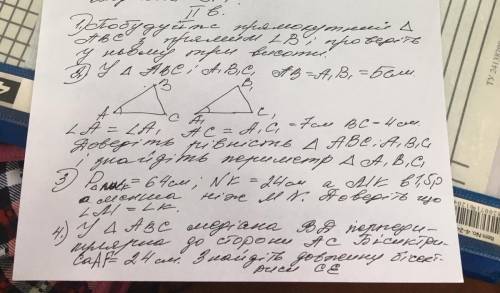 II в.
1) Побудуйте прямокутний Δ
ABC з прямим ∠B і проведіть
у ньому три висоти.
2) У Δ ABC і A₁B₁C₁ AB = A₁B₁ = 5 см.
B B₁
A C A₁ C₁
∠A = ∠A₁ AC = A₁C₁ = 7 см BC = 4 см.
Доведіть рівність Δ ABC i A₁B₁C₁
і знайдіть периметр Δ A₁B₁C₁
3) = 64 см; NK = 24 см а MK в 1,5 р
менша ніж MN. Доведіть що
∠M = ∠K.
4.) У Δ ABC медіана BD перпенди-
кулярна до сторони AC Бісектри-
са AF = 24 см. Знайдіть довжину бісект-
риси CE